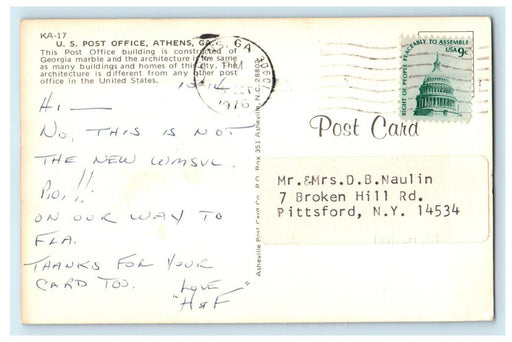 KA-17
U. S. POST OFFICE, ATHENS, GA.
This Post Office building is constructed of
Georgia marble and the architecture is the same
as many buildings and homes of this city. The
architecture is different from any other post
office in the United States.
10-14
HI —
NO, THIS IS NOT
THE NEW WMSVL.
P.O.!!
ON OUR WAY TO
FLA.
THANKS FOR YOUR
CARD TOO. LOVE
"H&F"
Asheville Post Card Co., P.O. Box 351 Asheville, N.C. 28802
GA
1976
RIGHT OF PEOPLE PEACEABLY TO ASSEMBLE
USA 9c
Post Card
Mr.&Mrs.D.B.Naulin
7 Broken Hill Rd.
Pittsford, N.Y. 14534